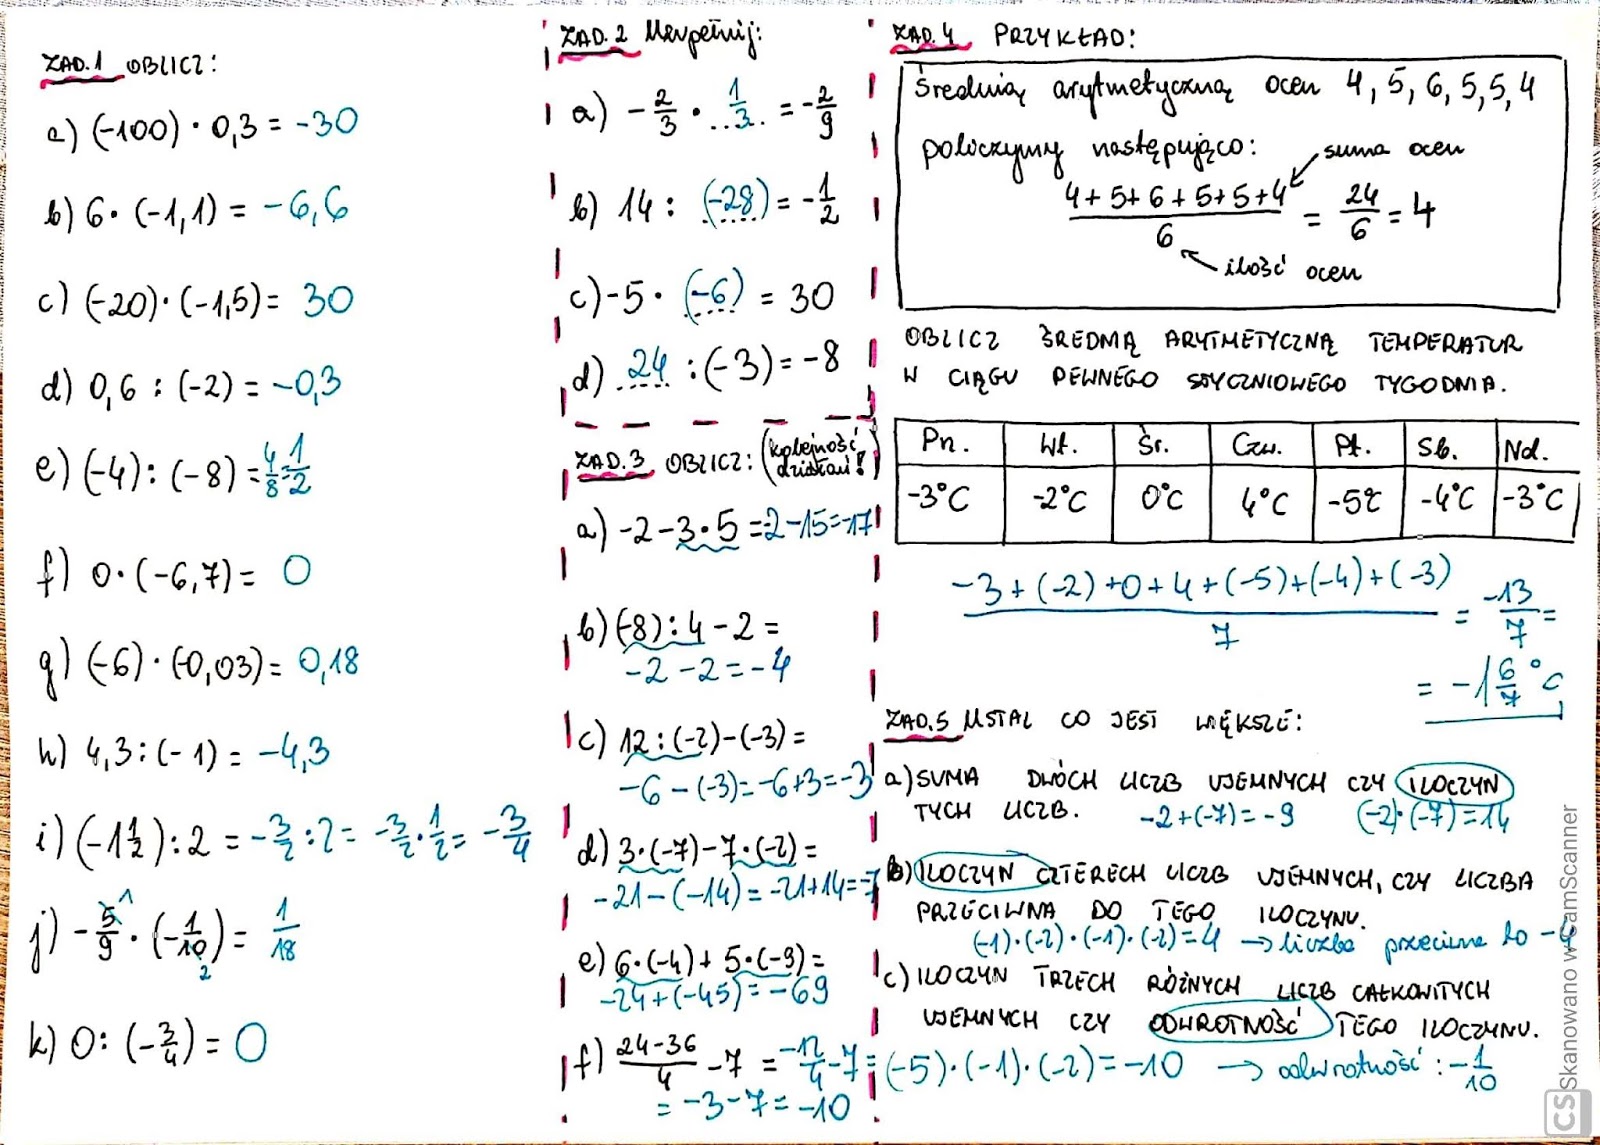 ZAD.1 OBLICZ:
a) (-100) · 0,3 = -30
b) 6 · (-1,1) = -6,6
c) (-20) · (-1,5) = 30
d) 0,6 : (-2) = -0,3
e) (-4) : (-8) = 4/8 = 1/2
f) 0 · (-6,7) = 0
g) (-6) · (-0,03) = 0,18
h) 4,3 : (-1) = -4,3
i) (-1 1/2) : 2 = -3/2 : 2 = -3/2 · 1/2 = -3/4
j) -5/9 · (-1/10) = 1/18
1
2
k) 0 : (-3/4) = 0
ZAD.2 Uzupełnij:
a) -2/3 · ..1/3.. = -2/9
b) 14 : (-28) = -1/2
c) -5 · (-6) = 30
d) ..24.. : (-3) = -8
ZAD.3 OBLICZ: (kolejność
działań!)
a) -2 - 3 · 5 = -2 - 15 = -17
b) (-8) : 4 - 2 =
-2 - 2 = -4
c) 12 : (-2) - (-3) =
-6 - (-3) = -6 + 3 = -3
d) 3 · (-7) - 7 · (-2) =
-21 - (-14) = -21 + 14 = -7
e) 6 · (-4) + 5 · (-9) =
-24 + (-45) = -69
f) 24-36/4 - 7 = -12/4 - 7 =
= -3 - 7 = -10
ZAD.4 PRZYKŁAD:
Średnią arytmetyczną ocen 4, 5, 6, 5, 5, 4
policzymy następująco:
suma ocen
4+5+6+5+5+4/6 = 24/6 = 4
ilość ocen
OBLICZ ŚREDNIĄ ARYTMETYCZNĄ TEMPERATUR
W CIĄGU PEWNEGO STYCZNIOWEGO TYGODNIA.
Pn. Wt. Śr. Czw. Pt. Sb. Nd.
-3°C -2°C 0°C 4°C -5°C -4°C -3°C
-3+(-2)+0+4+(-5)+(-4)+(-3)/7 = -13/7 =
= -1 6/7 °C
ZAD.5 USTAL CO JEST WIĘKSZE:
a) SUMA DWÓCH LICZB UJEMNYCH CZY ILOCZYN
TYCH LICZB. -2+(-7)=-9 (-2)·(-7)=14
b) ILOCZYN CZTERECH LICZB UJEMNYCH, CZY LICZBA
PRZECIWNA DO TEGO ILOCZYNU.
(-1)·(-2)·(-1)·(-2)=4 → liczba przeciwna to -4
c) ILOCZYN TRZECH RÓŻNYCH LICZB CAŁKOWITYCH
UJEMNYCH CZY ODWROTNOŚĆ TEGO ILOCZYNU.
(-5)·(-1)·(-2)=-10 → odwrotność: -1/10
CS Skanowano w CamScanner